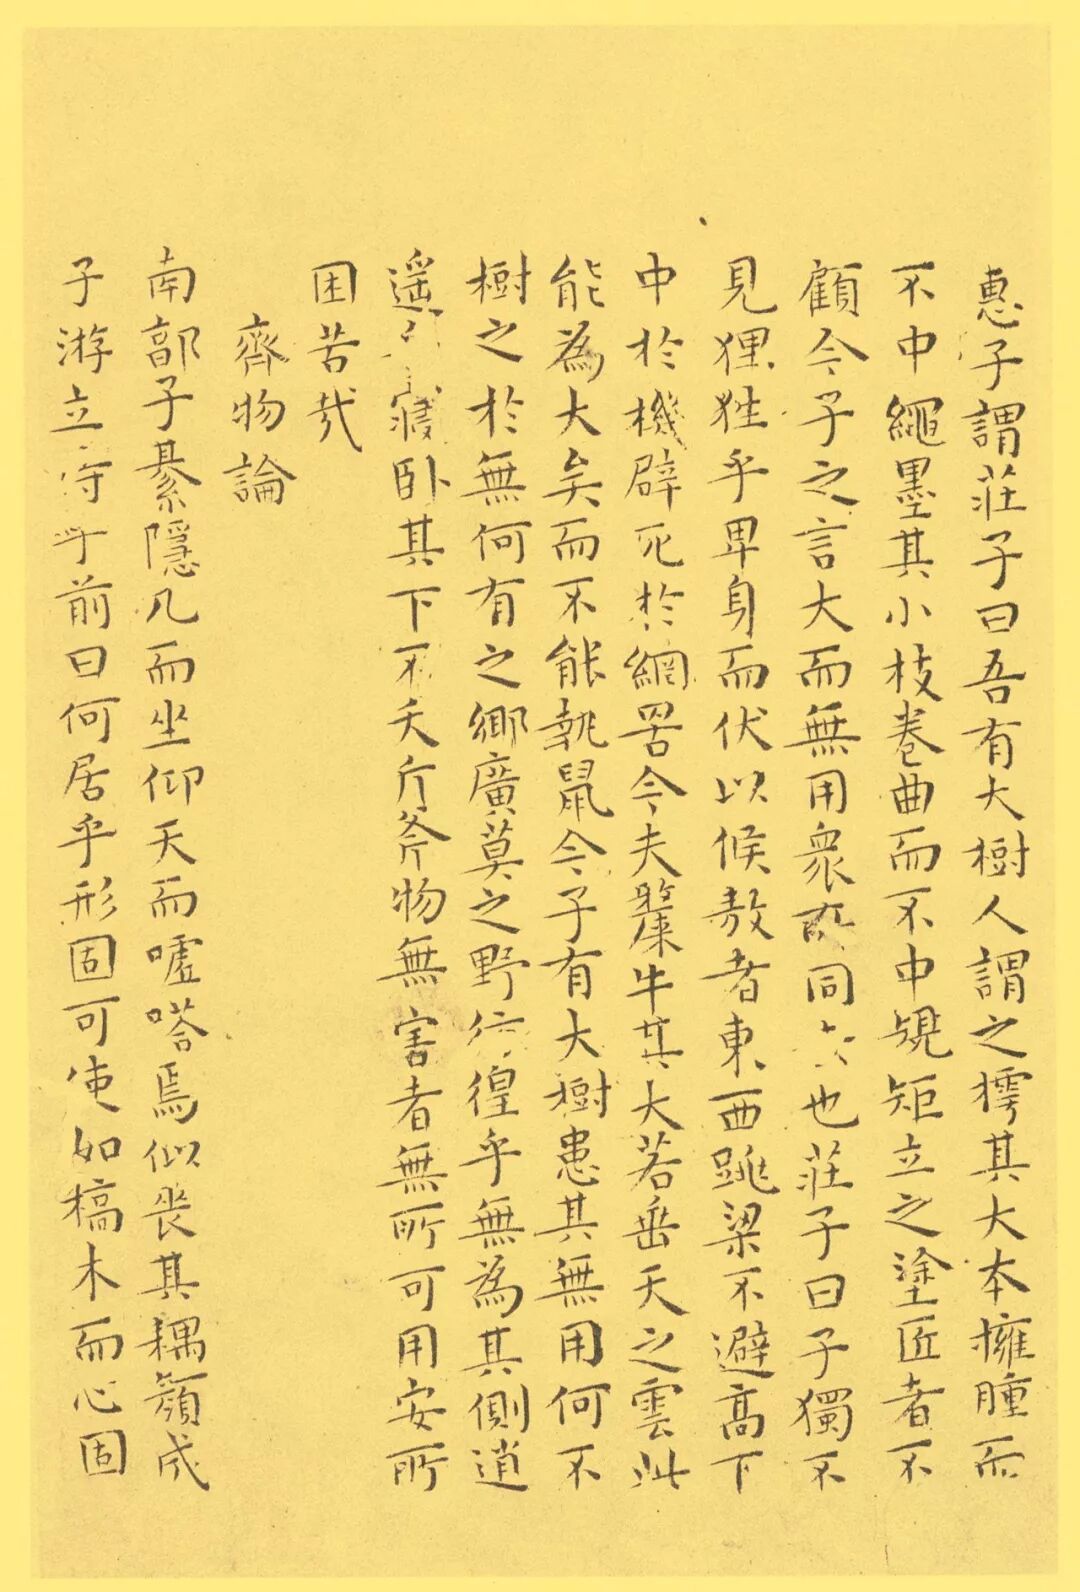 惠子謂莊子曰吾有大樹人謂之樗其大本擁腫而
不中繩墨其小枝卷曲而不中規矩立之塗匠者不
顧今子之言大而無用衆所同去也莊子曰子獨不
見狸狌乎卑身而伏以候敖者東西跳梁不避高下
中於機辟死於網罟今夫斄牛其大若垂天之雲此
能為大矣而不能執鼠今子有大樹患其無用何不
樹之於無何有之鄉廣莫之野彷徨乎無為其側逍
遥乎寢卧其下不夭斤斧物無害者無所可用安所
困苦哉
齊物論
南郭子綦隱几而坐仰天而嘘嗒焉似喪其耦顔成
子游立侍乎前曰何居乎形固可使如槁木而心固